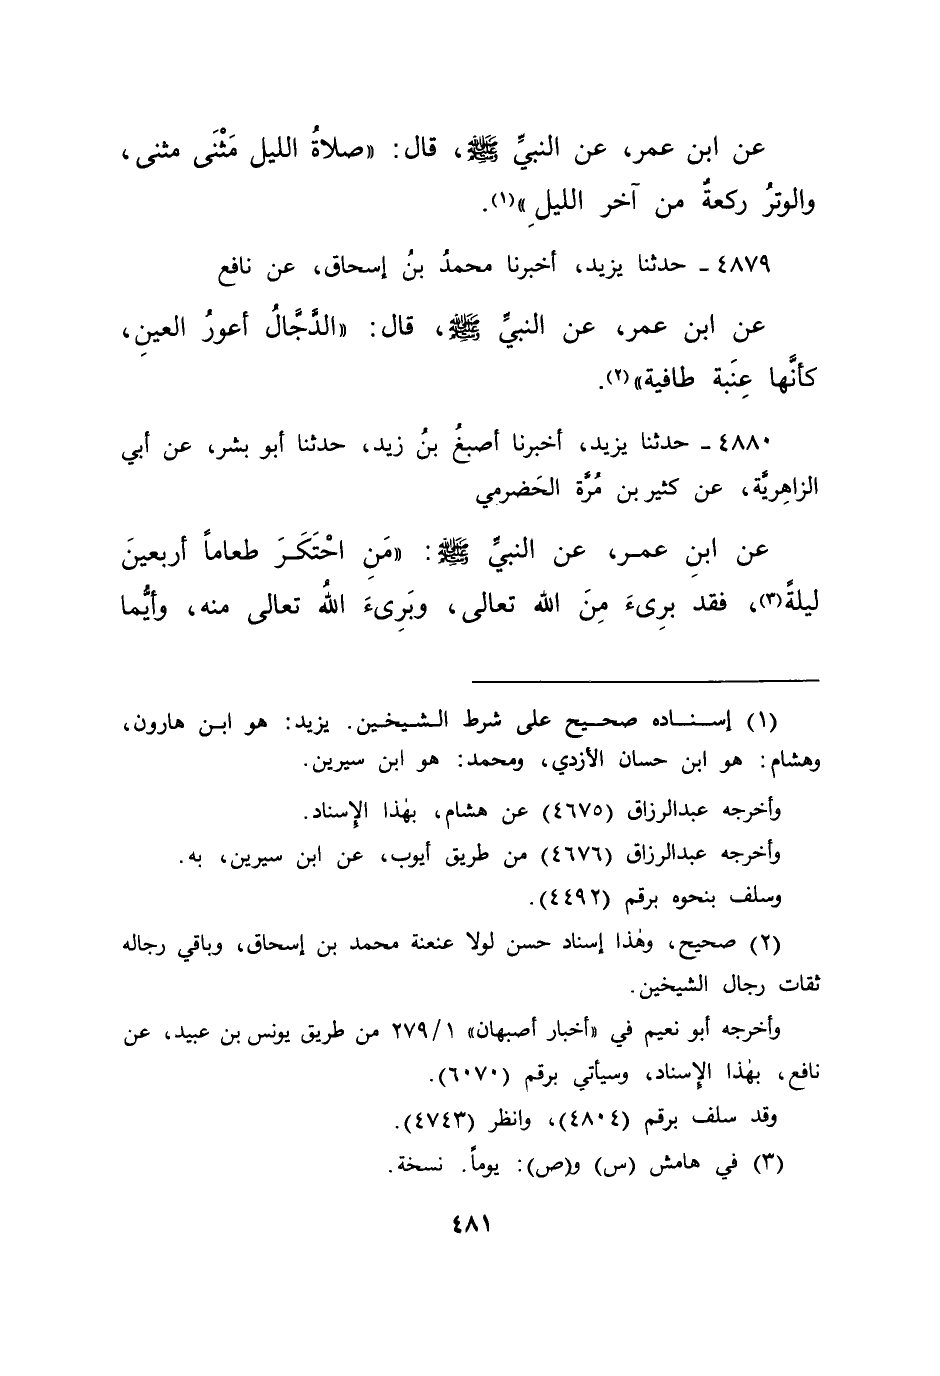 عن ابن عمر، عن النبيِّ ﷺ، قال: «صلاةُ الليل مَثْنَى مثنى،
والوترُ ركعةٌ من آخر الليلِ»(١).
٤٨٧٩ ـ حدثنا يزيد، أخبرنا محمدُ بنُ إسحاق، عن نافع
عن ابن عمر، عن النبيِّ ﷺ، قال: «الدَّجَّالُ أعورُ العينِ،
كأنَّها عِنَبة طافية»(٢).
٤٨٨٠ ـ حدثنا يزيد، أخبرنا أصبغُ بنُ زيد، حدثنا أبو بشر، عن أبي
الزاهِريَّة، عن كثير بن مُرَّة الحَضرمي
عن ابنِ عمـر، عن النبيِّ ﷺ: «مَنِ احْتَكَـرَ طعاماً أربعينَ
ليلةً(٣)، فقد برِىءَ مِنَ الله تعالى، وبَرِىءَ اللهُ تعالى منه، وأيُّما
(١) إســنــاده صحــيح على شرط الـشـيخـين. يزيد: هو ابـن هارون،
وهشام: هو ابن حسان الأزدي، ومحمد: هو ابن سيرين.
وأخرجه عبدالرزاق (٤٦٧٥) عن هشام، بهٰذا الإِسناد.
وأخرجه عبدالرزاق (٤٦٧٦) من طريق أيوب، عن ابن سيرين، به.
وسلف بنحوه برقم (٤٤٩٢).
(٢) صحيح، وهٰذا إسناد حسن لولا عنعنة محمد بن إسحاق، وباقي رجاله
ثقات رجال الشيخين.
وأخرجه أبو نعيم في «أخبار أصبهان» ٢٧٩/١ من طريق يونس بن عبيد، عن
نافع، بهٰذا الإِسناد، وسيأتي برقم (٦٠٧٠).
وقد سلف برقم (٤٨٠٤)، وانظر (٤٧٤٣).
(٣) في هامش (س) و(ص): يوماً. نسخة.
٤٨١